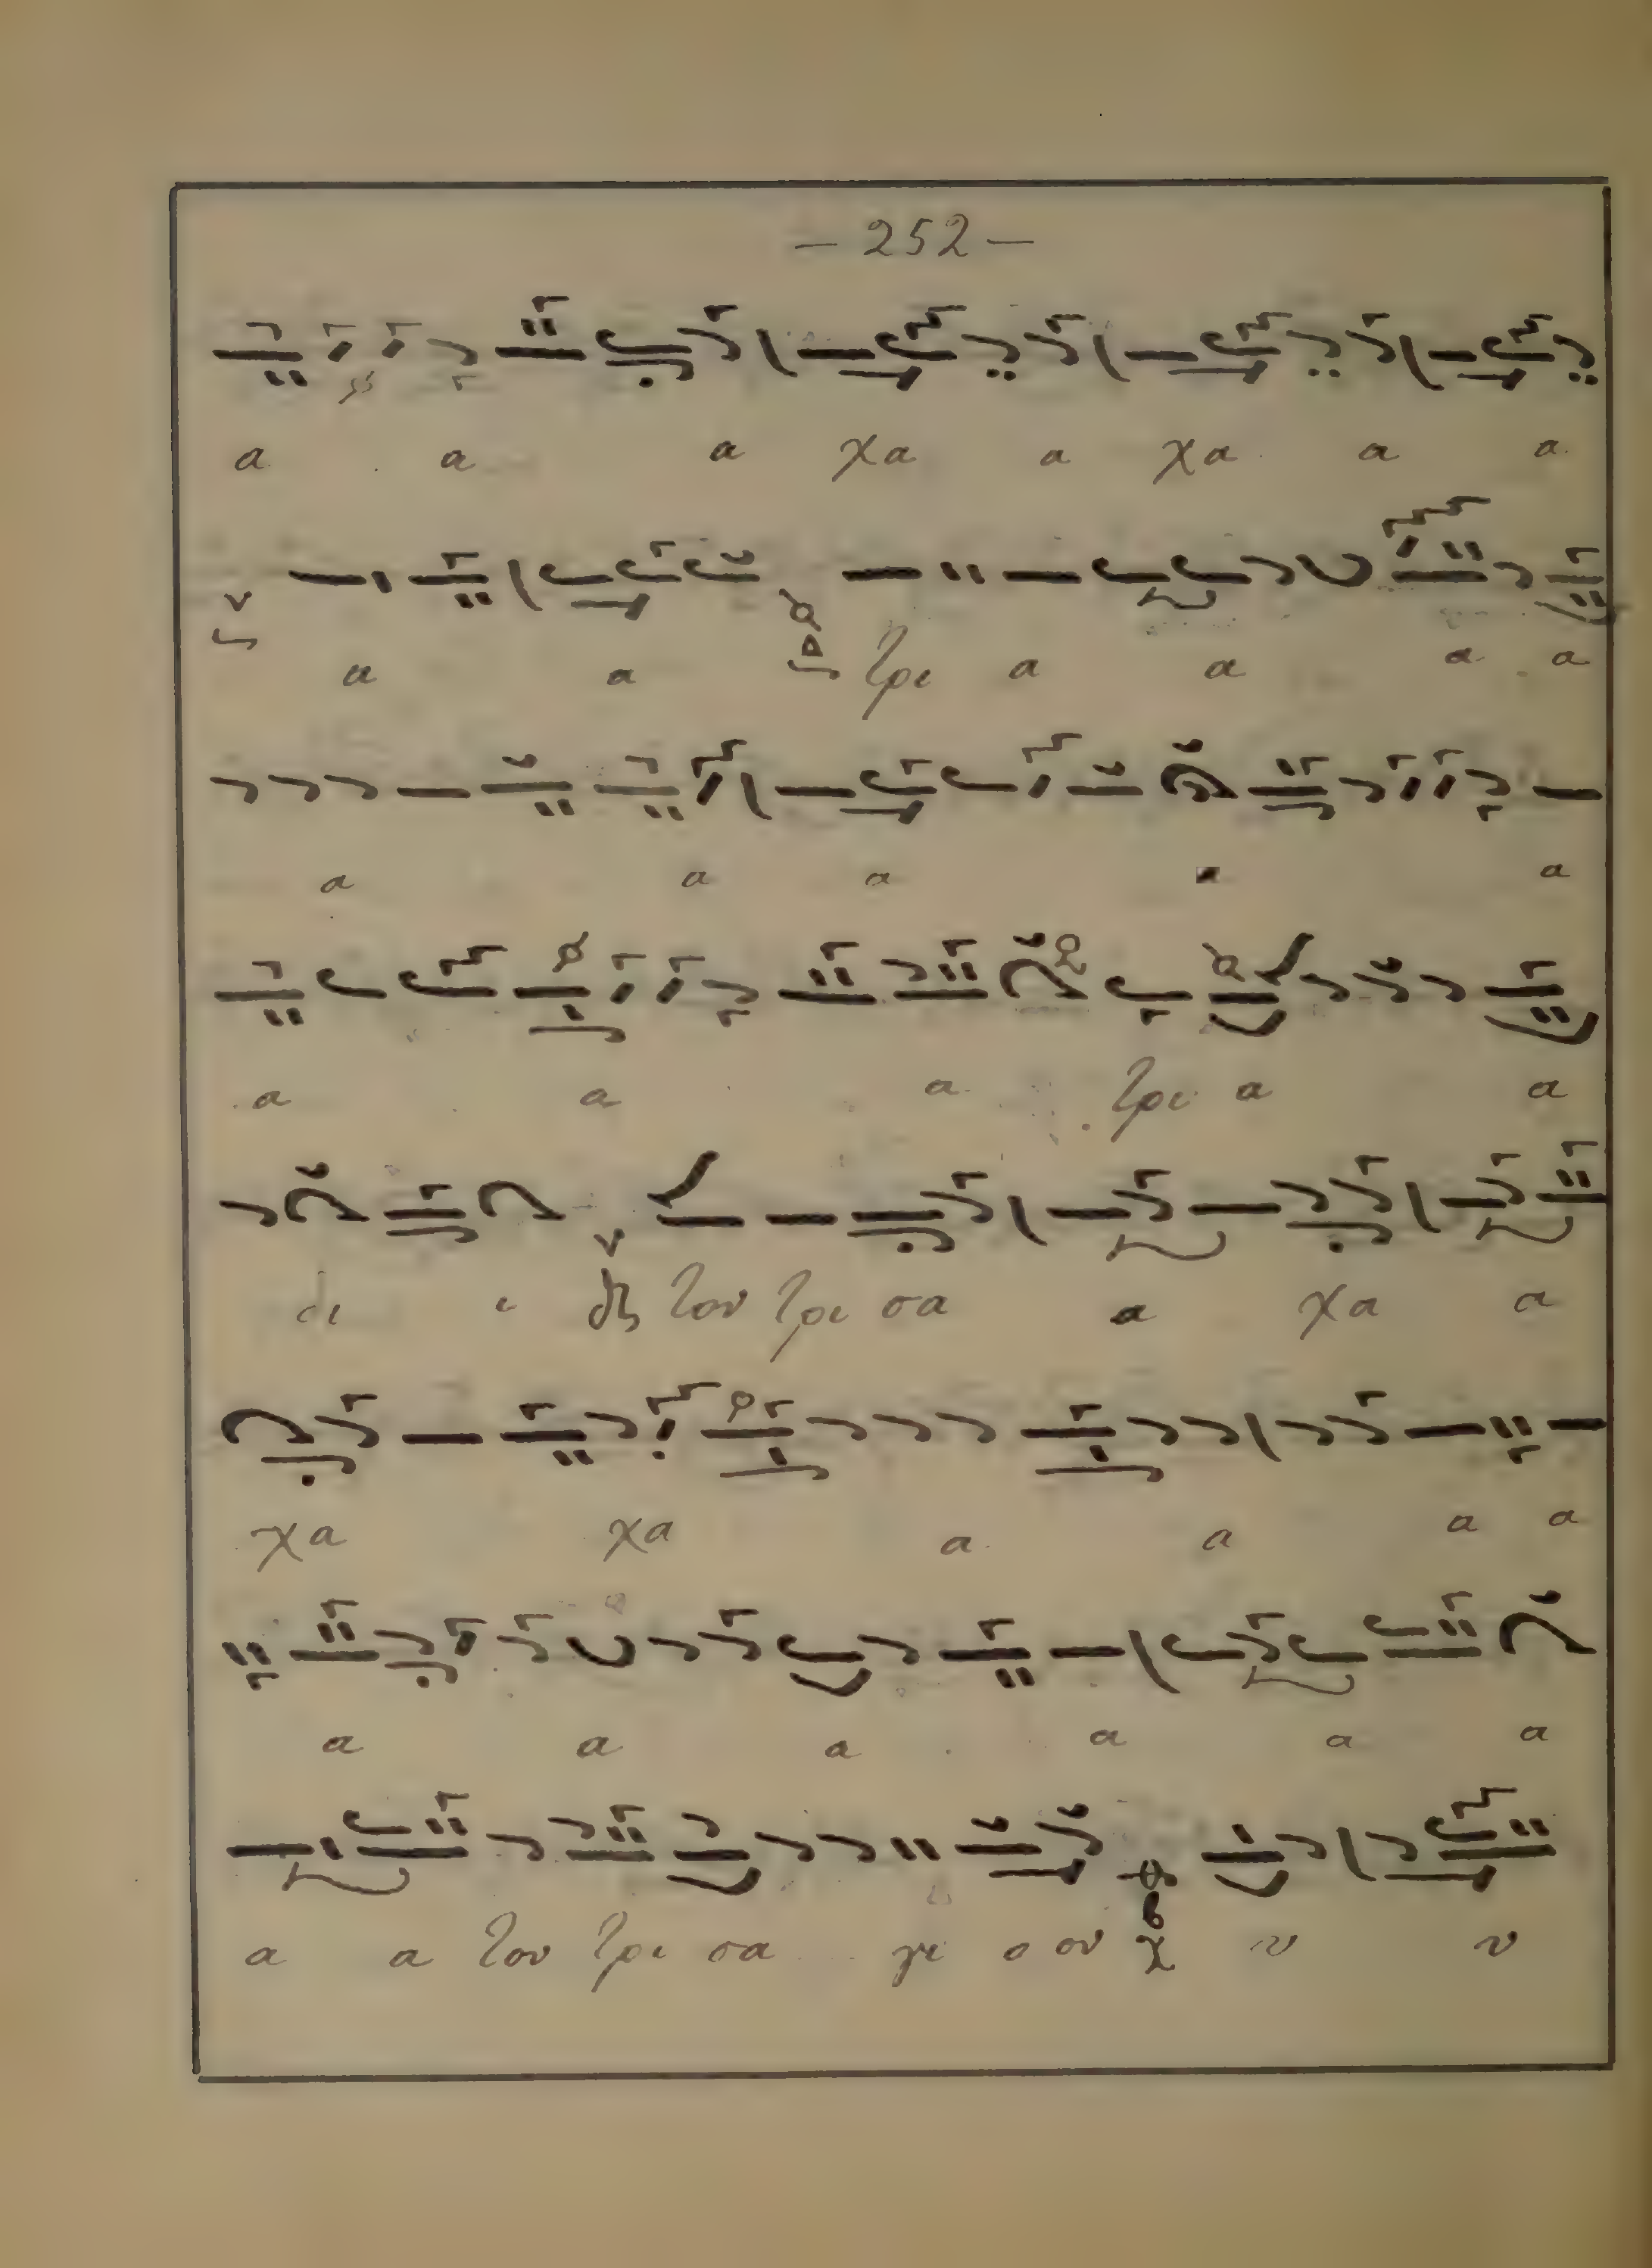 — 252 —
α α α χα α χα α α
α α τρι α α α α
α α α α α
α α α τρι α α
δι ι τον τρι σα α χα α
χα χα α α α α
α α α α α α
α α τον τρι σα γι ο ον υ υ